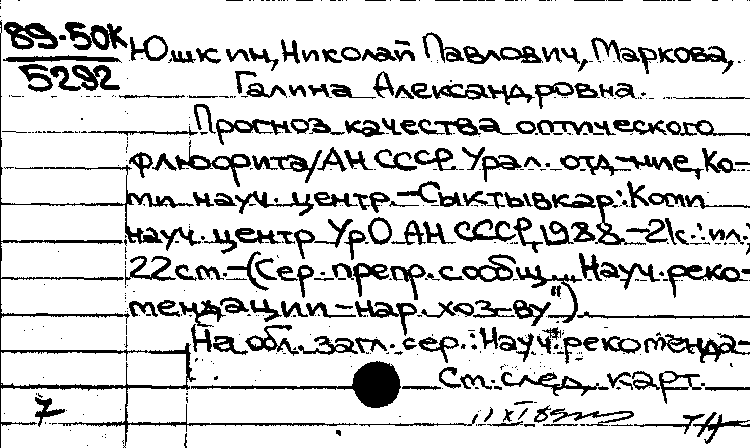 89-50К
5292
Юшкин, Николай Павлович, Маркова,
Галина Александровна.
Прогноз качества оптического
флюорита/АН СССР. Урал. отд-ние, Ко-
ми науч. центр.-Сыктывкар: Коми
науч. центр УрО АН СССР, 1988.-21с.: ил.;
22см.-(Сер. препр. сообщ. „Науч. реко-
мендации-нар. хоз-ву").
На обл. загл. сер.: Науч. рекоменда-
См. след. карт.
7